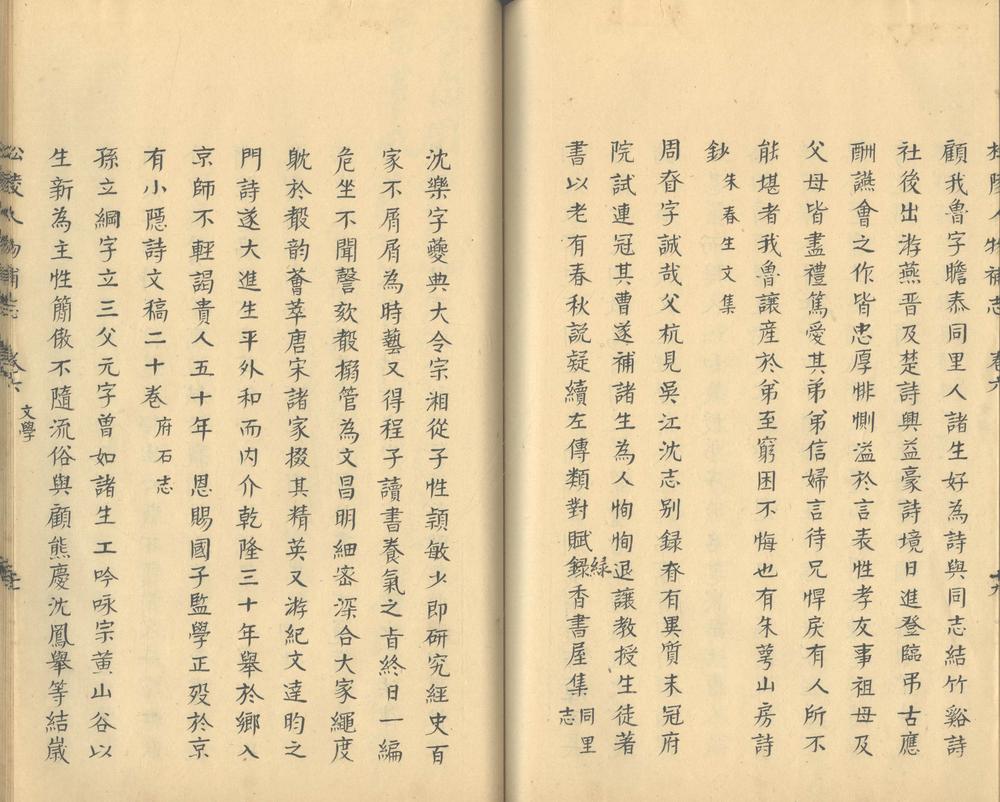 人物補志 卷六
顧我魯字瞻㤗同里人諸生好為詩與同志結竹谿詩
社後出游燕晋及楚詩興益豪詩境日進登臨弔古應
酬讌會之作皆忠厚悱惻溢於言表性孝友事祖母及
父母皆盡禮篤愛其弟弟信婦言待兄悍戾有人所不
能堪者我魯讓産於弟至窮困不悔也有朱萼山房詩
鈔 朱春生文集
周昚字誠哉父杭見吳江沈志别録昚有異質未冠府
院試連冠其曹遂補諸生為人恂恂退讓教授生徒著
書以老有春秋説疑續左傳類對賦録綠香書屋集 同里
志
沈欒字夔典大令宗湘從子性頴敏少即研究經史百
家不屑屑為時藝又得程子讀書養氣之旨終日一編
危坐不聞謦欬殽搦管為文昌明細宻深合大家繩度
躭於殽韵薈萃唐宋諸家掇其精英又游紀文達昀之
門詩遂大進生平外和而内介乾隆三十年舉於鄉入
京師不輕謁貴人五十年 恩賜國子監學正殁於京
有小隱詩文稿二十卷 府石志
孫立綱字立三父元字曾如諸生工吟咏宗黄山谷以
生新為主性簡傲不隨流俗與顧熊慶沈鳳舉等結嵗
人物補志 卷六 文學